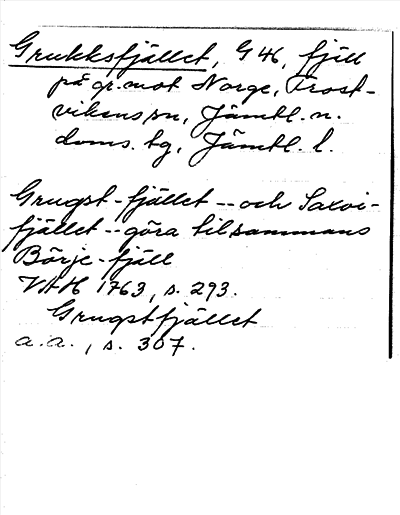 Grukksfjället, G 46, fjäll
på gr. mot Norge, Frost-
vikens sn, Jämtl. n.
doms. tg, Jämtl. l.
Grugst-fjället -- och Saxoi-
fjället -- göra tilsammans
Börje-fjäll
VAH 1763, s. 293.
Grugstfjället
a. a., s. 307.